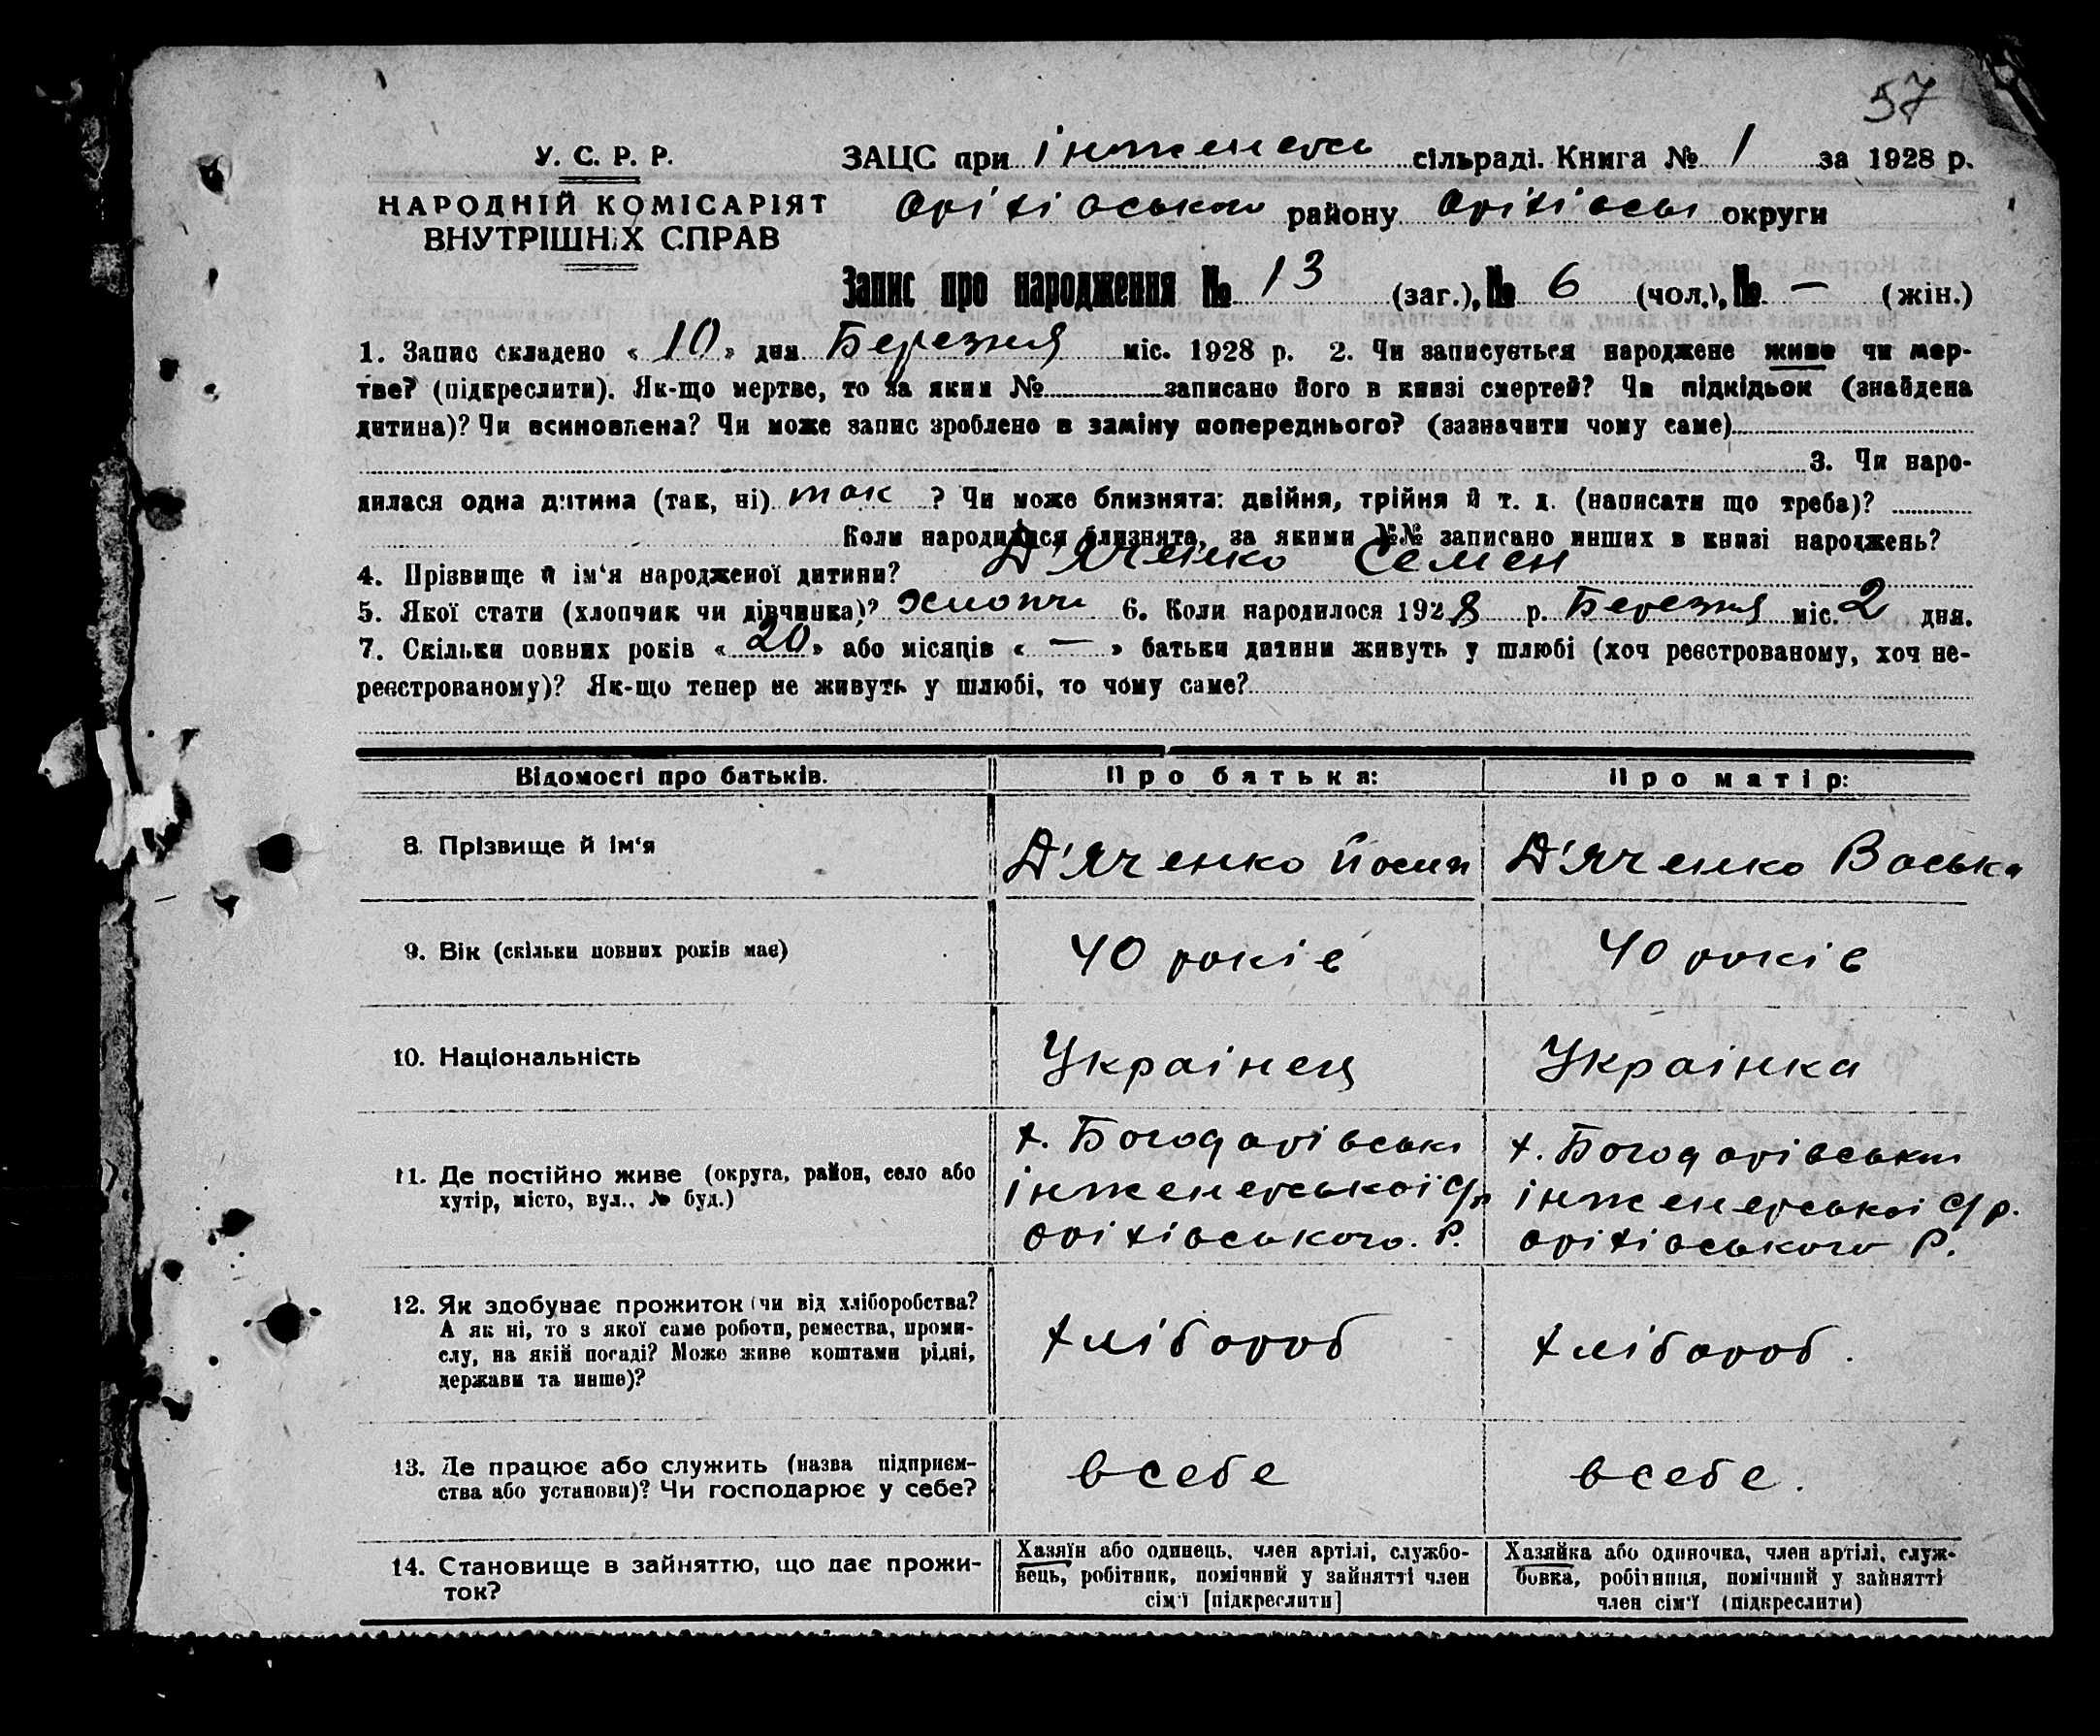 57
У. С. Р. Р.
НАРОДНІЙ КОМІСАРІЯТ
ВНУТРІШНІХ СПРАВ
ЗАЦС при інженерсь сільраді. Книга № 1 за 1928 р.
Оріхівського району Оріхівськ округи
Запис про народження № 13 (заг.), № 6 (чол.), № — (жін.)
1. Запис складено « 10 » дня Березня міс. 1928 р. 2. Чи записується народжене живе чи мер-
тве? (підкреслити). Як-що мертве, то за яким № записано його в книзі смертей? Чи підкідьок (знайдена
дитина)? Чи всиновлена? Чи може запис зроблено в заміну попереднього? (зазначити чому саме)
3. Чи наро-
дилася одна дитина (так, ні) так ? Чи може близнята: двійня, трійня й т. д. (написати що треба)?
Коли народилися близнята, за якими №№ записано инших в книзі народжень?
4. Прізвище й ім‘я народженої дитини? Д'яченко Семен
5. Якої стати (хлопчик чи дівчинка)? Хлопч 6. Коли народилося 1928 р. Березня міс. 2 дня.
7. Скільки повних років « 20 » або місяців « — » батьки дитини живуть у шлюбі (хоч реєстрованому, хоч не-
реєстрованому)? Як-що тепер не живуть у шлюбі, то чому саме?
Відомості про батьків. Про батька: Про матір:
8. Прізвище й ім‘я Д'яченко Йосип Д'яченко Васька
9. Вік (скільки повних років має) 40 років 40 років
10. Національність Украінец Украінка
11. Де постійно живе (округа, район, село або
хутір, місто, вул., № буд.)
х. Богодарівськи
інженерськоі с/р
оріхівського. Р.
х. Богодарівський
інженерськоі с/р.
оріхівського Р.
12. Як здобуває прожиток (чи від хліборобства?
А як ні, то з якої саме роботи, ремества, проми-
слу, на якій посаді? Може живе коштами рідні,
держави та инше)?
хлібороб хлібороб.
13. Де працює або служить (назва підприєм-
ства або установи)? Чи господарює у себе?
в себе в себе.
14. Становище в зайняттю, що дає прожи-
ток?
Хазяїн або одинець, член артілі, службо-
вець, робітник, помічний у зайнятті член
сім‘ї [підкреслити]
Хазяйка або одиночка, член артілі, служ-
бовка, робітниця, помічний у зайнятті
член сім‘ї (підкреслити)